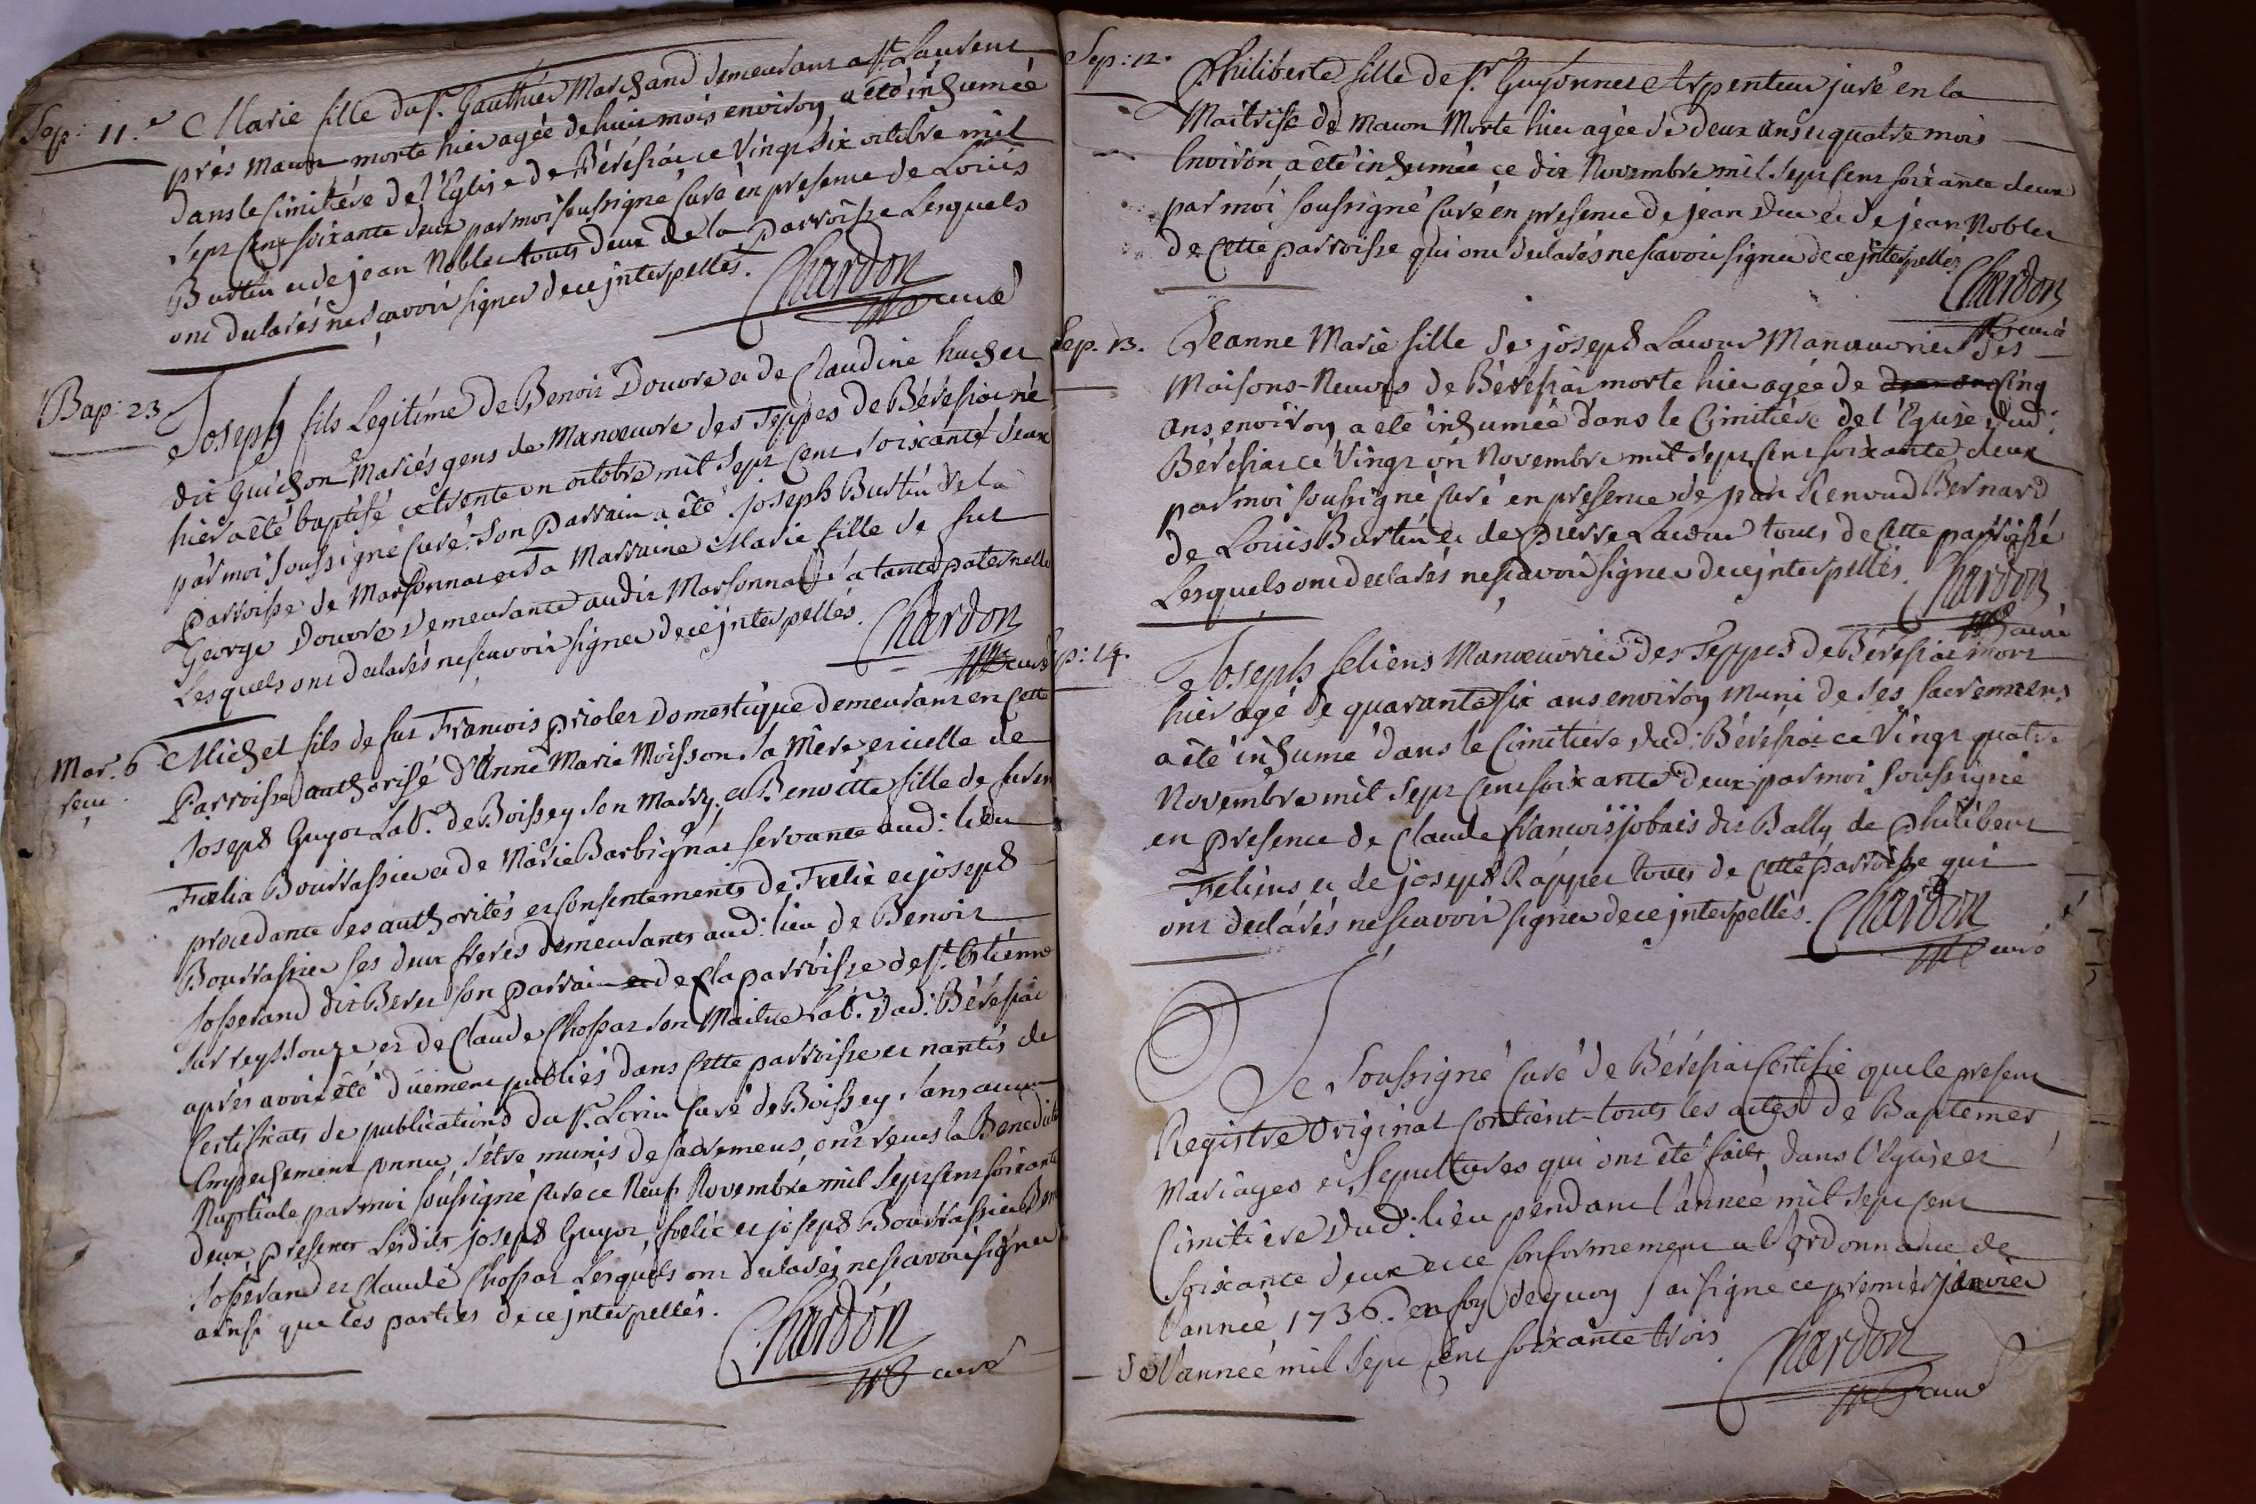 Sep: 11.e Marie fille du sr. Gauthier Marchand demeurant a st. Laurent
près Macon morte hier agée de huit mois environ a été inhumée
dans le Cimitére de l'Eglise de Béréssiat ce Vingt six octobre mil
sept Cent soixante deux par moi soussigné Curé en presence de Loüis
Burtin et de jean Noblet touts deux de la parroisse Lesquels
ont declarés ne sçavoir signer de ce jnterpellés.
Chardon
curé
Bap: 23 Joseph fils Legitime de Benoit Douvre et de Claudine huchet
dit Guichon Mariés gens de Manoeuvre des Teppes de Béréssiat né
hier a été baptisé ce trente un octobre mil sept Cent soixante deux
par moi soussigné Curé. Son Parrain a été joseph Burtin de la
Parroisse de Marsonnat et sa Marraine Marie fille de fut
George Douvre demeurante audit Marsonnat sa tante paternelle
Lesquels ont declarés ne scavoir signer de ce jnterpellés.
Chardon
curé
Mar. 6 Michel fils de fut Francois priolet Domestique demeurant en Cette
Parroisse authorisé d'Anne Marie Moisson sa Mère et icelle de
Joseph Guyot Lab.r de Boissey son Marry, et Benoitte fille de fut
Fœlix Bourrassier et de Marie Barbignat servante aud: lieu
procedante des authorités et Consentements de Fœlix et joseph
Bourrassier ses deux freres demeurants aud: lieu de Benoit
Josserand dit Beret son parrain de la parroisse de st. Etienne
sur reyssouze et de Claude Chossat son Maitre Lab.r dud: Béréssiat
aprés avoir été düement publiés dans Cette parroisse et nantis de
Certificats de publications du sr. Lorin Curé de Boissey sans aucun
Empechement connu, s'etre munis de sacremens, ont reçus la Benediction
Nuptiale par moi soussigné Curé ce Neuf Novembre mil sept Cent soixante
deux, presents Lesdits joseph Guyot, fœlix et joseph Bourrassier
Josserand et Claude Chossat Lesquels ont declarés ne scavoir signer
ainsi que les parties de ce jnterpellés.
Chardon
curé
Sep: 12. Philiberte fille de sr. Guyonnet Arpenteur juré en la
Maitrise de Macon Morte hier agée de deux ans et quatre mois
Environ, a été inhumée ce dix Novembre mil sept Cent soixante deux
par moi soussigné Curé en presence de jean Duc et de jean Noblet
de Cette parroisse qui ont declarés ne scavoir signer de ce jnterpellés
Chardon
curé
Sep. 13. Jeanne Marie fille de joseph Lacour Manœuvrier des
Maisons-Neuves de Béréssiat morte hier agée de Cinq
Ans environ a été inhumée dans le Cimitiére de l'Eglise dud:
Béréssiat ce Vingt un Novembre mil sept Cent soixante deux
par moi soussigné Curé en presence de jean Renoud Bernard
de Loüis Burtin et de pierre Lacour touts de Cette parroisse
Lesquels ont declarés ne scavoir signer de ce jnterpellés.
Chardon
curé
Sep: 14. Joseph feliens Manœuvrier des Teppes de Béréssiat mort
hier agé de quarante six ans environ Muni de ses sacremens
a été inhumé dans le Cimitiere dud: Béréssiat ce Vingt quatre
Novembre mil sept Cent soixante deux par moi soussigné
en presence de Claude francois jobais dit Bally de philibert
Feliens et de joseph Rappet touts de Cette parroisse qui
ont declarés ne scavoir signer de ce jnterpellés.
Chardon
curé
Je soussigné Curé de Béréssiat Certifie que le present
Registre Original Contient touts les actes de Baptemes
Mariages et Sepultures qui ont été faits dans l'Eglise et
Cimitiére dud: lieu pendant l'année mil sept Cent
soixante deux et ce Conformement a l'ordonnance de
l'année 1736. en foy de quoy j'ai signé ce premier janvier
de l'année mil sept Cent soixante trois.
Chardon
curé